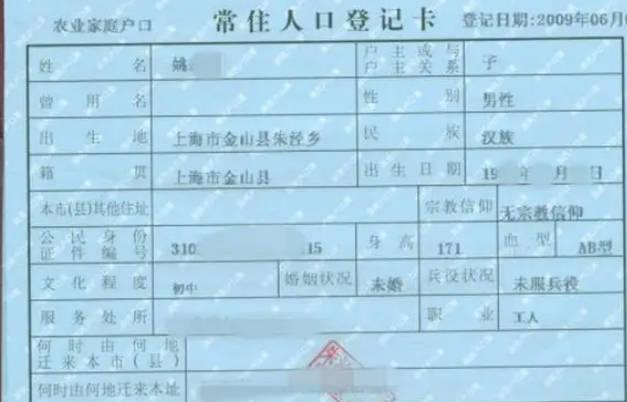 农业家庭户口 常住人口登记卡 登记日期:2009年06月
姓名 姚 户主或与户主关系 子
曾用名 性别 男性
出生地 上海市金山县朱泾乡 民族 汉族
籍贯 上海市金山县 出生日期 19 年 月 日
本市(县)其他住址 宗教信仰 无宗教信仰
公民身份证件编号 310 15 身高 171 血型 AB型
文化程度 初中 婚姻状况 未婚 兵役状况 未服兵役
服务处所 职业 工人
何时由何地迁来本市(县)
何时由何地迁来本址